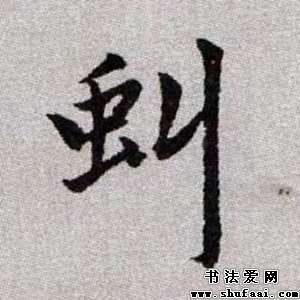 虯
书法爱网
www.shufaai.com